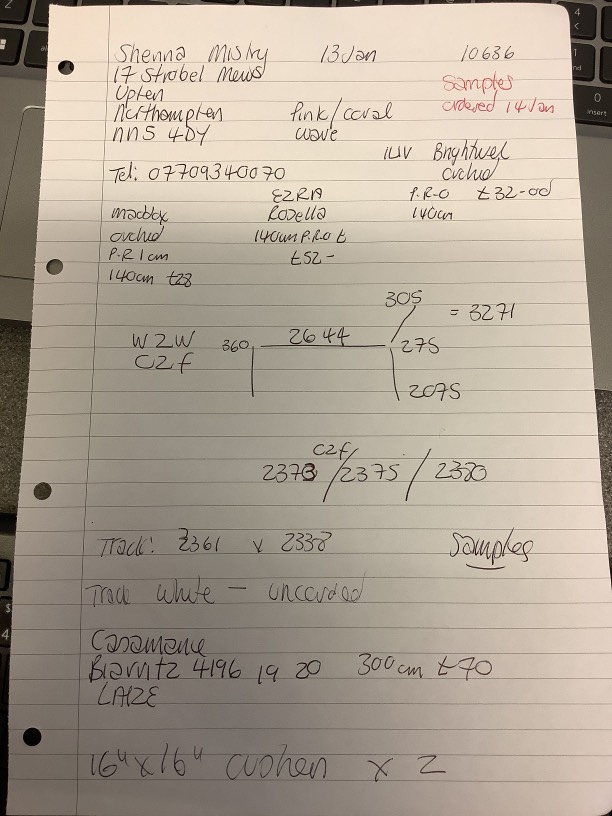 Shenna Mistry 13 Jan 10636
17 Strobel Mews
Upten
Northampten
NN5 4DY
samples
ordered 14 Jan
Pink/coral
wave
Tel: 07709340070
ILIV Brightwell
orchid
P.R.O £32-00
140cm
EZRA
Rosella
140cm P.R.O £
£52-
maddox
orchid
P.R 1cm
140cm £28
W2W
C2f
360 2644 305 = 3271
275
2075
C2f
2373 / 2375 / 2380
Track: 2361 x 2338 Samples
Track White - uncorded
Casamance
Biarritz 4196 19 20 300cm £70
LAIZE
16" x 16" cushen x 2